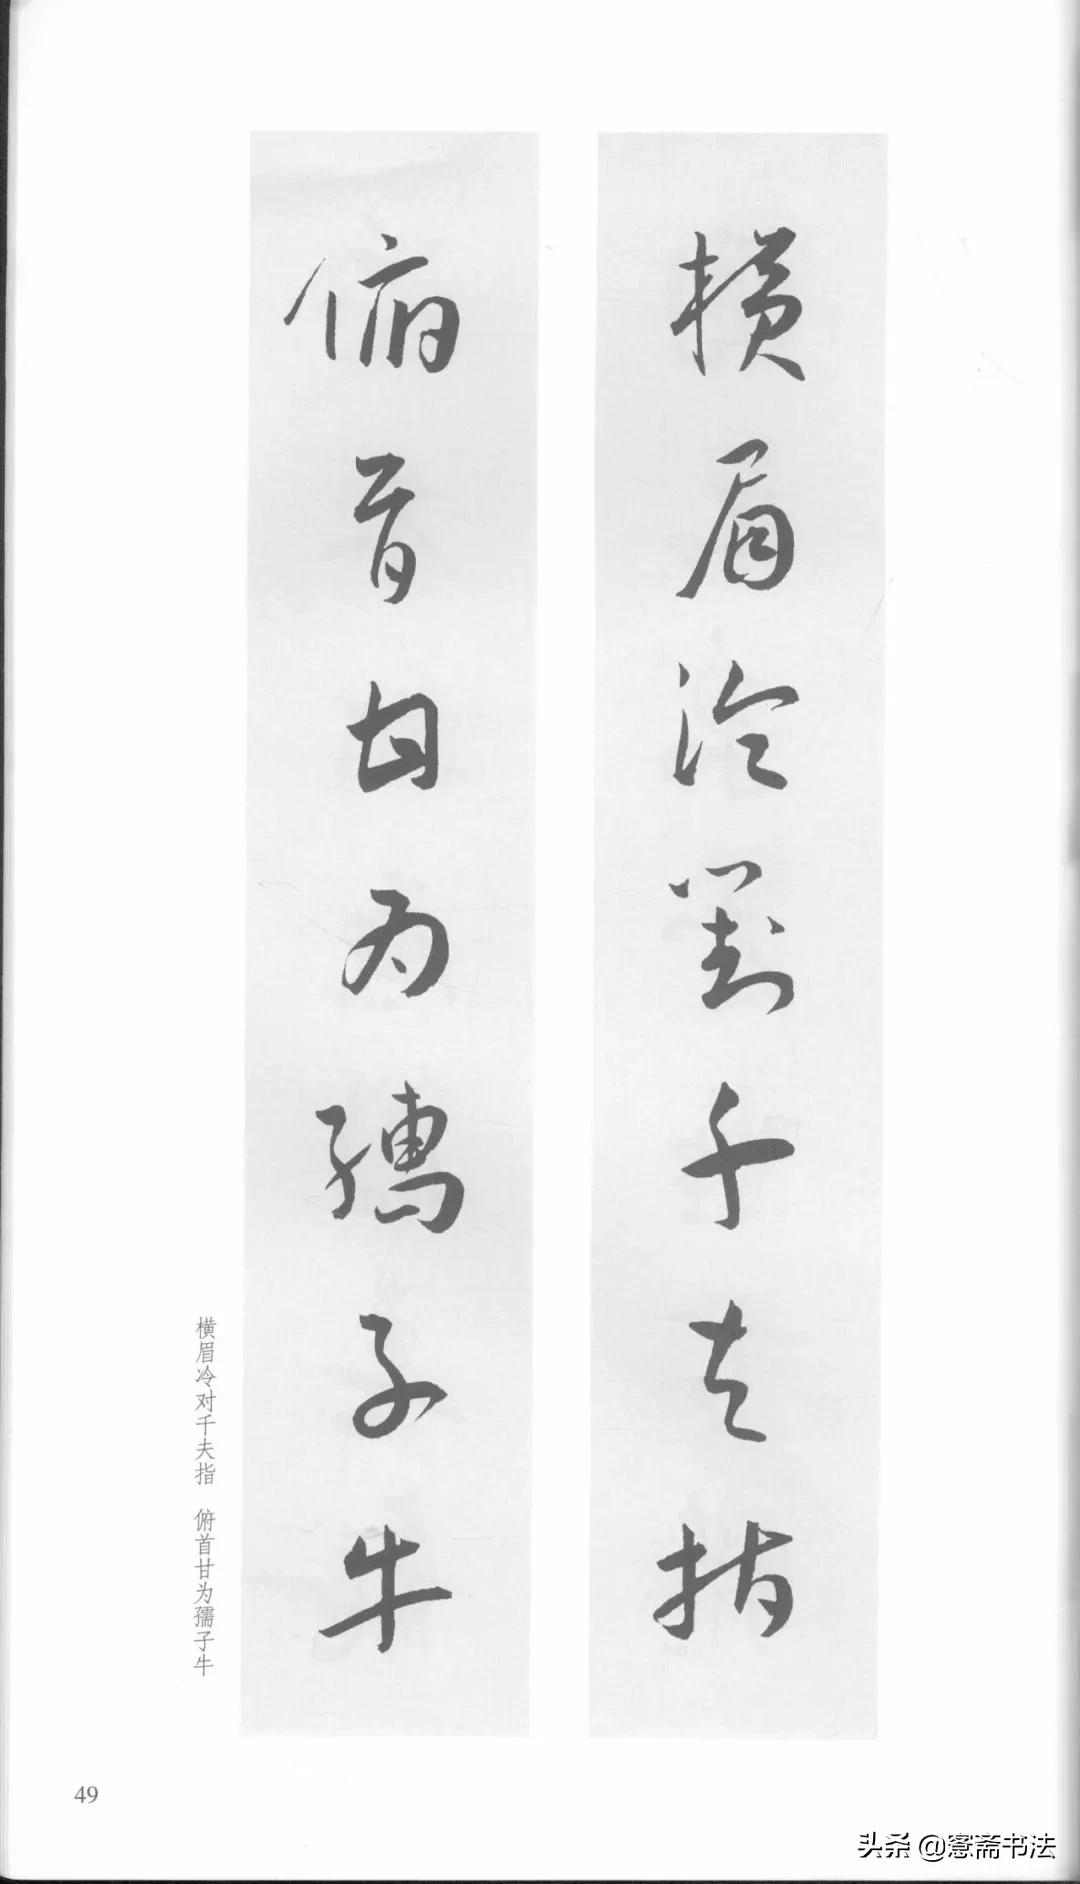 横眉冷對千夫指
俯首甘为孺子牛
横眉冷对千夫指 俯首甘为孺子牛
49
头条 @窓斋书法